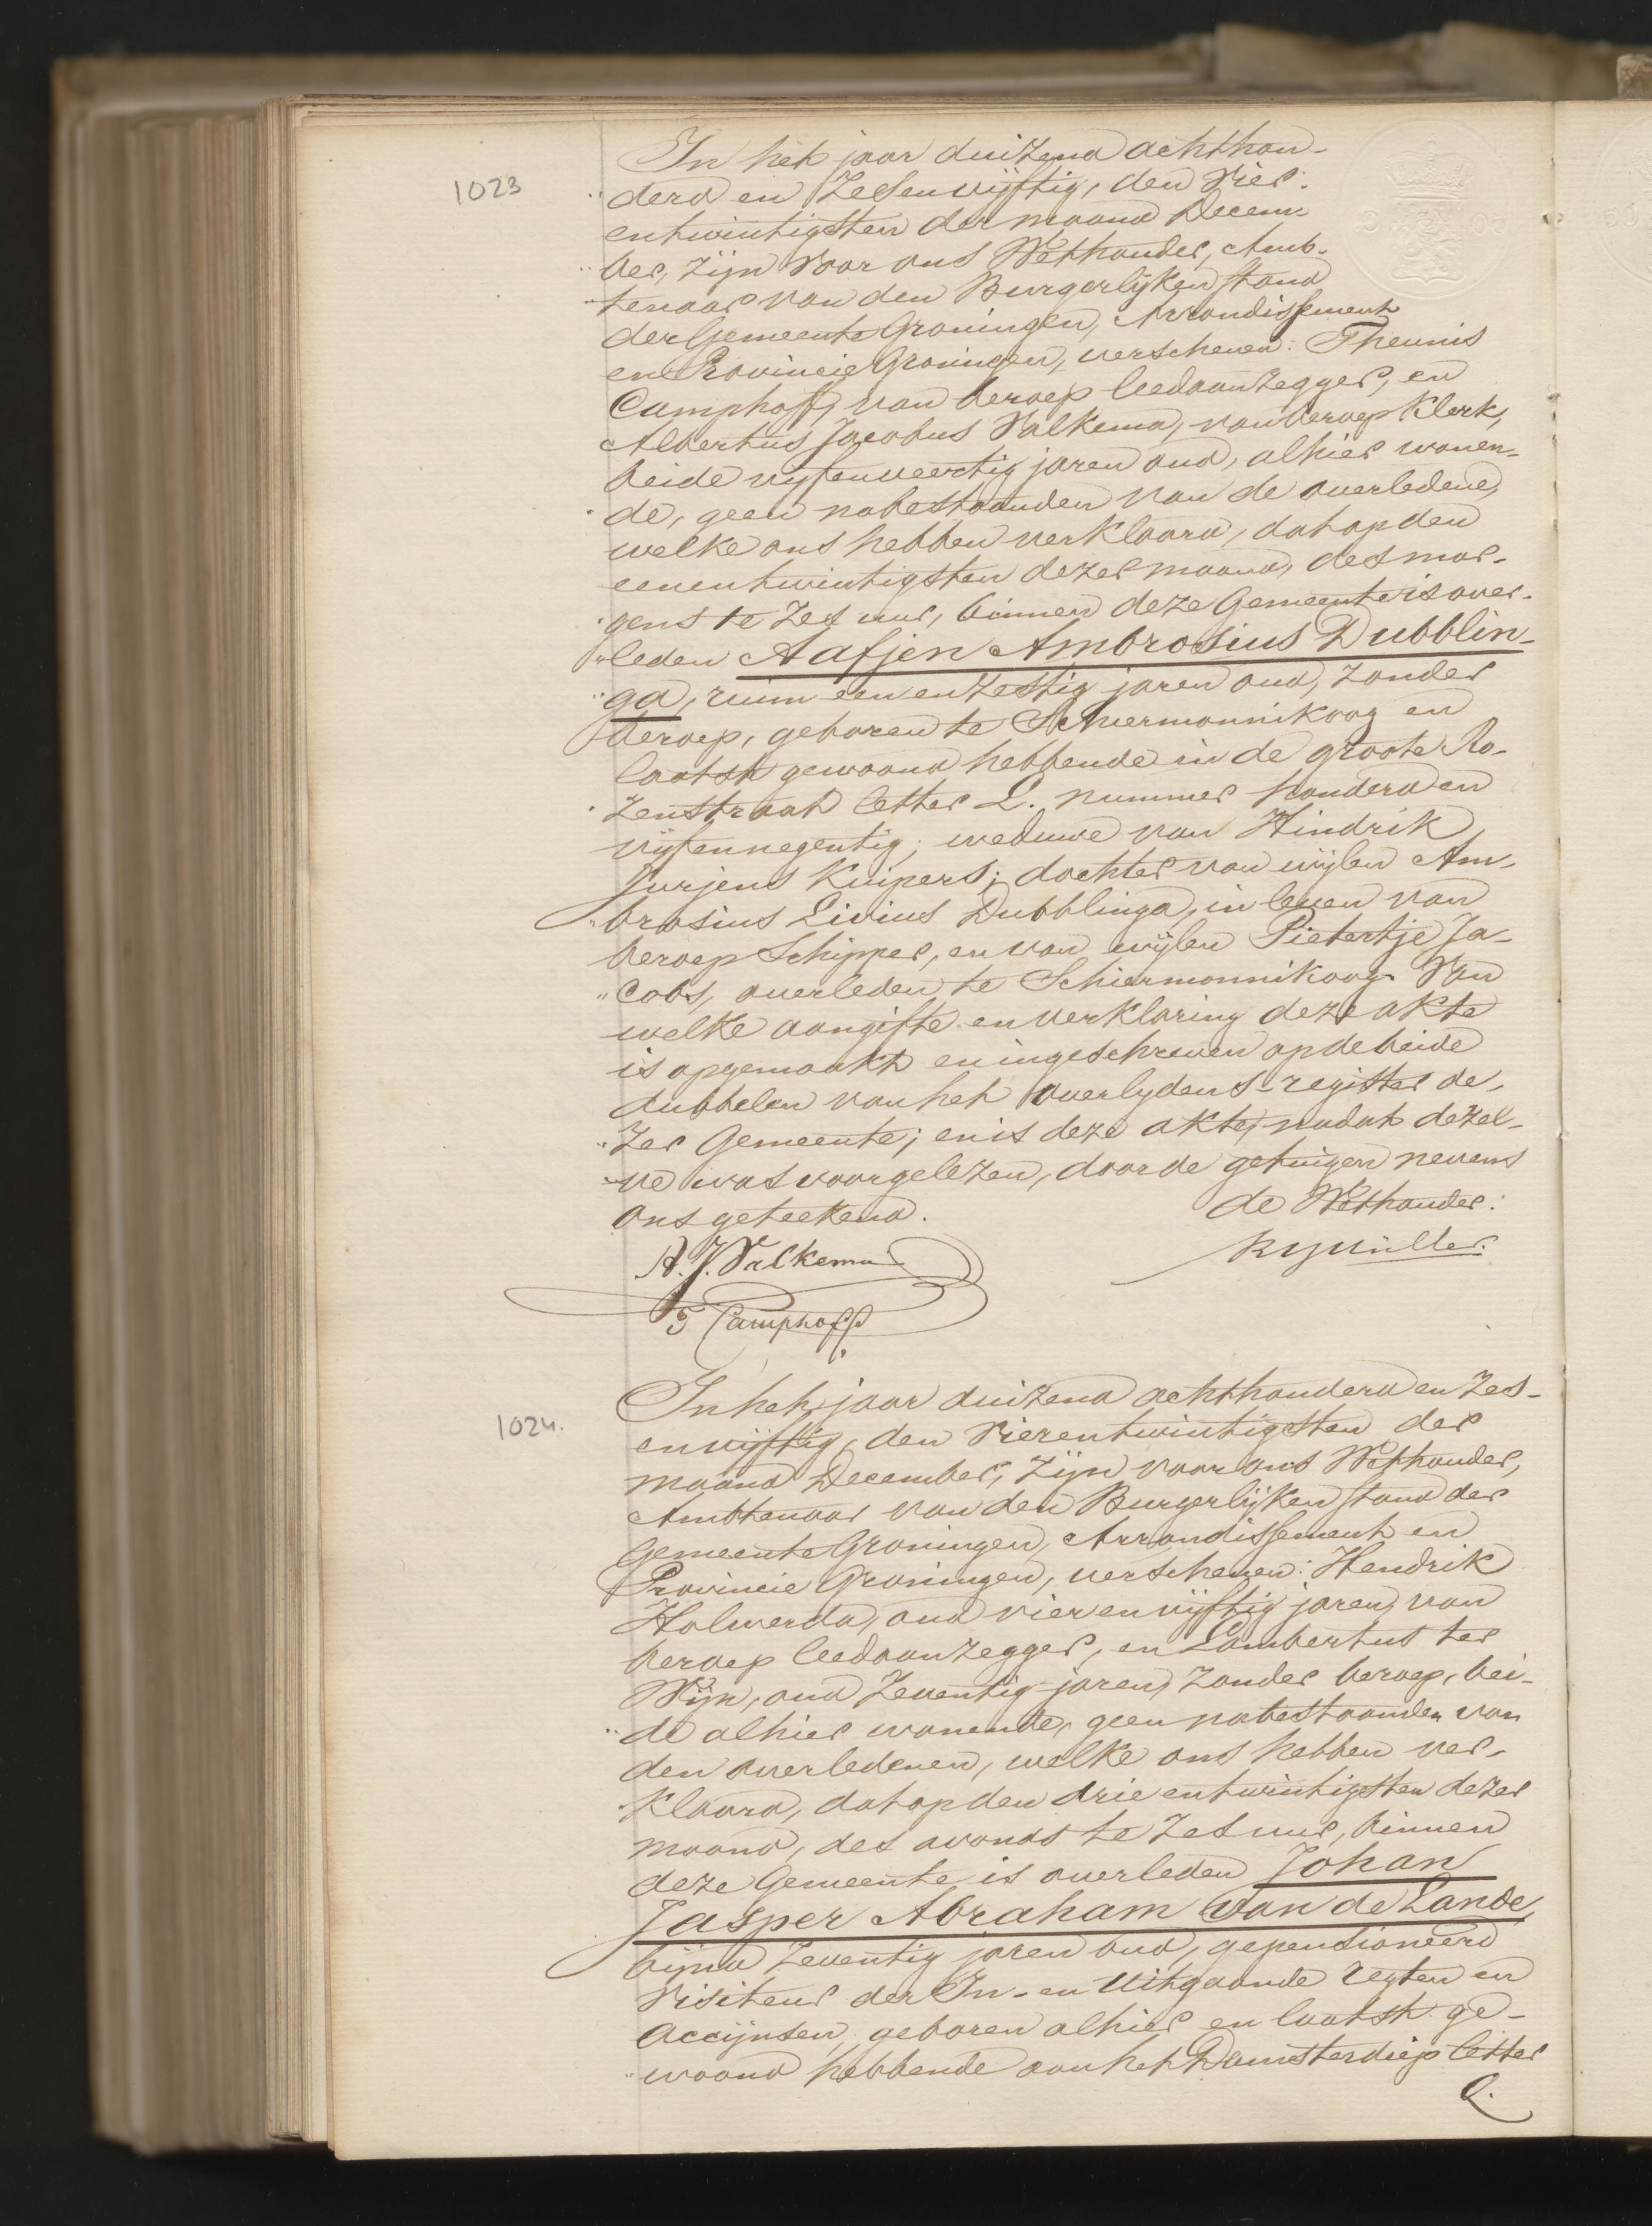 1023
In het jaar duizend achthon-
derd en Zesenvijftig, den Vier-
entwintigsten der maand Decem-
ber, zijn voor ons Wethouder, Amb-
tenaar van den Burgerlijken stand
der Gemeente Groningen, Arrondissement
en Provincie Groningen, verschenen: Theunis
Camphoff, van beroep leedaanzegger, en
Albertus Jacobus Valkema, van beroep klerk,
beide vijfenveertig jaren oud, alhier wonen-
de, geen nabestaanden van de overledene,
welke ons hebben verklaard, dat op den
eenentwintigsten dezer maand, des mor-
gens te Zes uur, binnen deze Gemeente is over-
leden Aafjen Ambrosius Dubblin-
ga, ruim eenenzestig jaren oud, zonder
beroep, geboren te Schiermonnikoog en
laatst gewoond hebbende in de groote Ro-
zenstraat letter L. nummer honderd en
vijfennegentig; weduwe van Hindrik
Jurjens Kuipers; dochter van wijlen Am-
brosius Livius Dubblinga, in leven van
beroep Schipper, en van wijlen Pietertje Ja-
cobs, overleden te Schiermonnikoog. Van
welke aangifte en verklaring deze akte
is opgemaakt en ingeschreven op de beide
dubbelen van het overlydens-register de-
zer Gemeente; en is deze akte, nadat dezel-
ve was voorgelezen, door de getuigen nevens
ons geteekend.
de Wethouder:
A. J. Valkema
T Camphoff
1024.
In het jaar duizend achthonderd en Zes-
envijftig, den Vierentwintigsten der
maand December, zijn voor ons Wethouder,
Ambtenaar van den Burgerlijken stand der
Gemeente Groningen, Arrondissement en
Provincie Groningen, verschenen: Hendrik
Holwerda, oud vierenvijftig jaren, van
beroep leedaanzegger, en Lambertus ter
Wijn, oud Zeventig jaren, zonder beroep, bei-
de alhier wonende, geen nabestaanden van
den overledenen, welke ons hebben ver-
klaard, dat op den drieentwintigsten dezer
maand, des avonds te Zes uur, binnen
deze Gemeente is overleden Johan
Jasper Abraham van de Lande,
bijna Zeventig jaren oud, gepensioneerd
Visiteur der In- en Uitgaande regten en
Accijnsen, geboren alhier en laatst ge-
woond hebbende aan het Damsterdiep letter
Q.